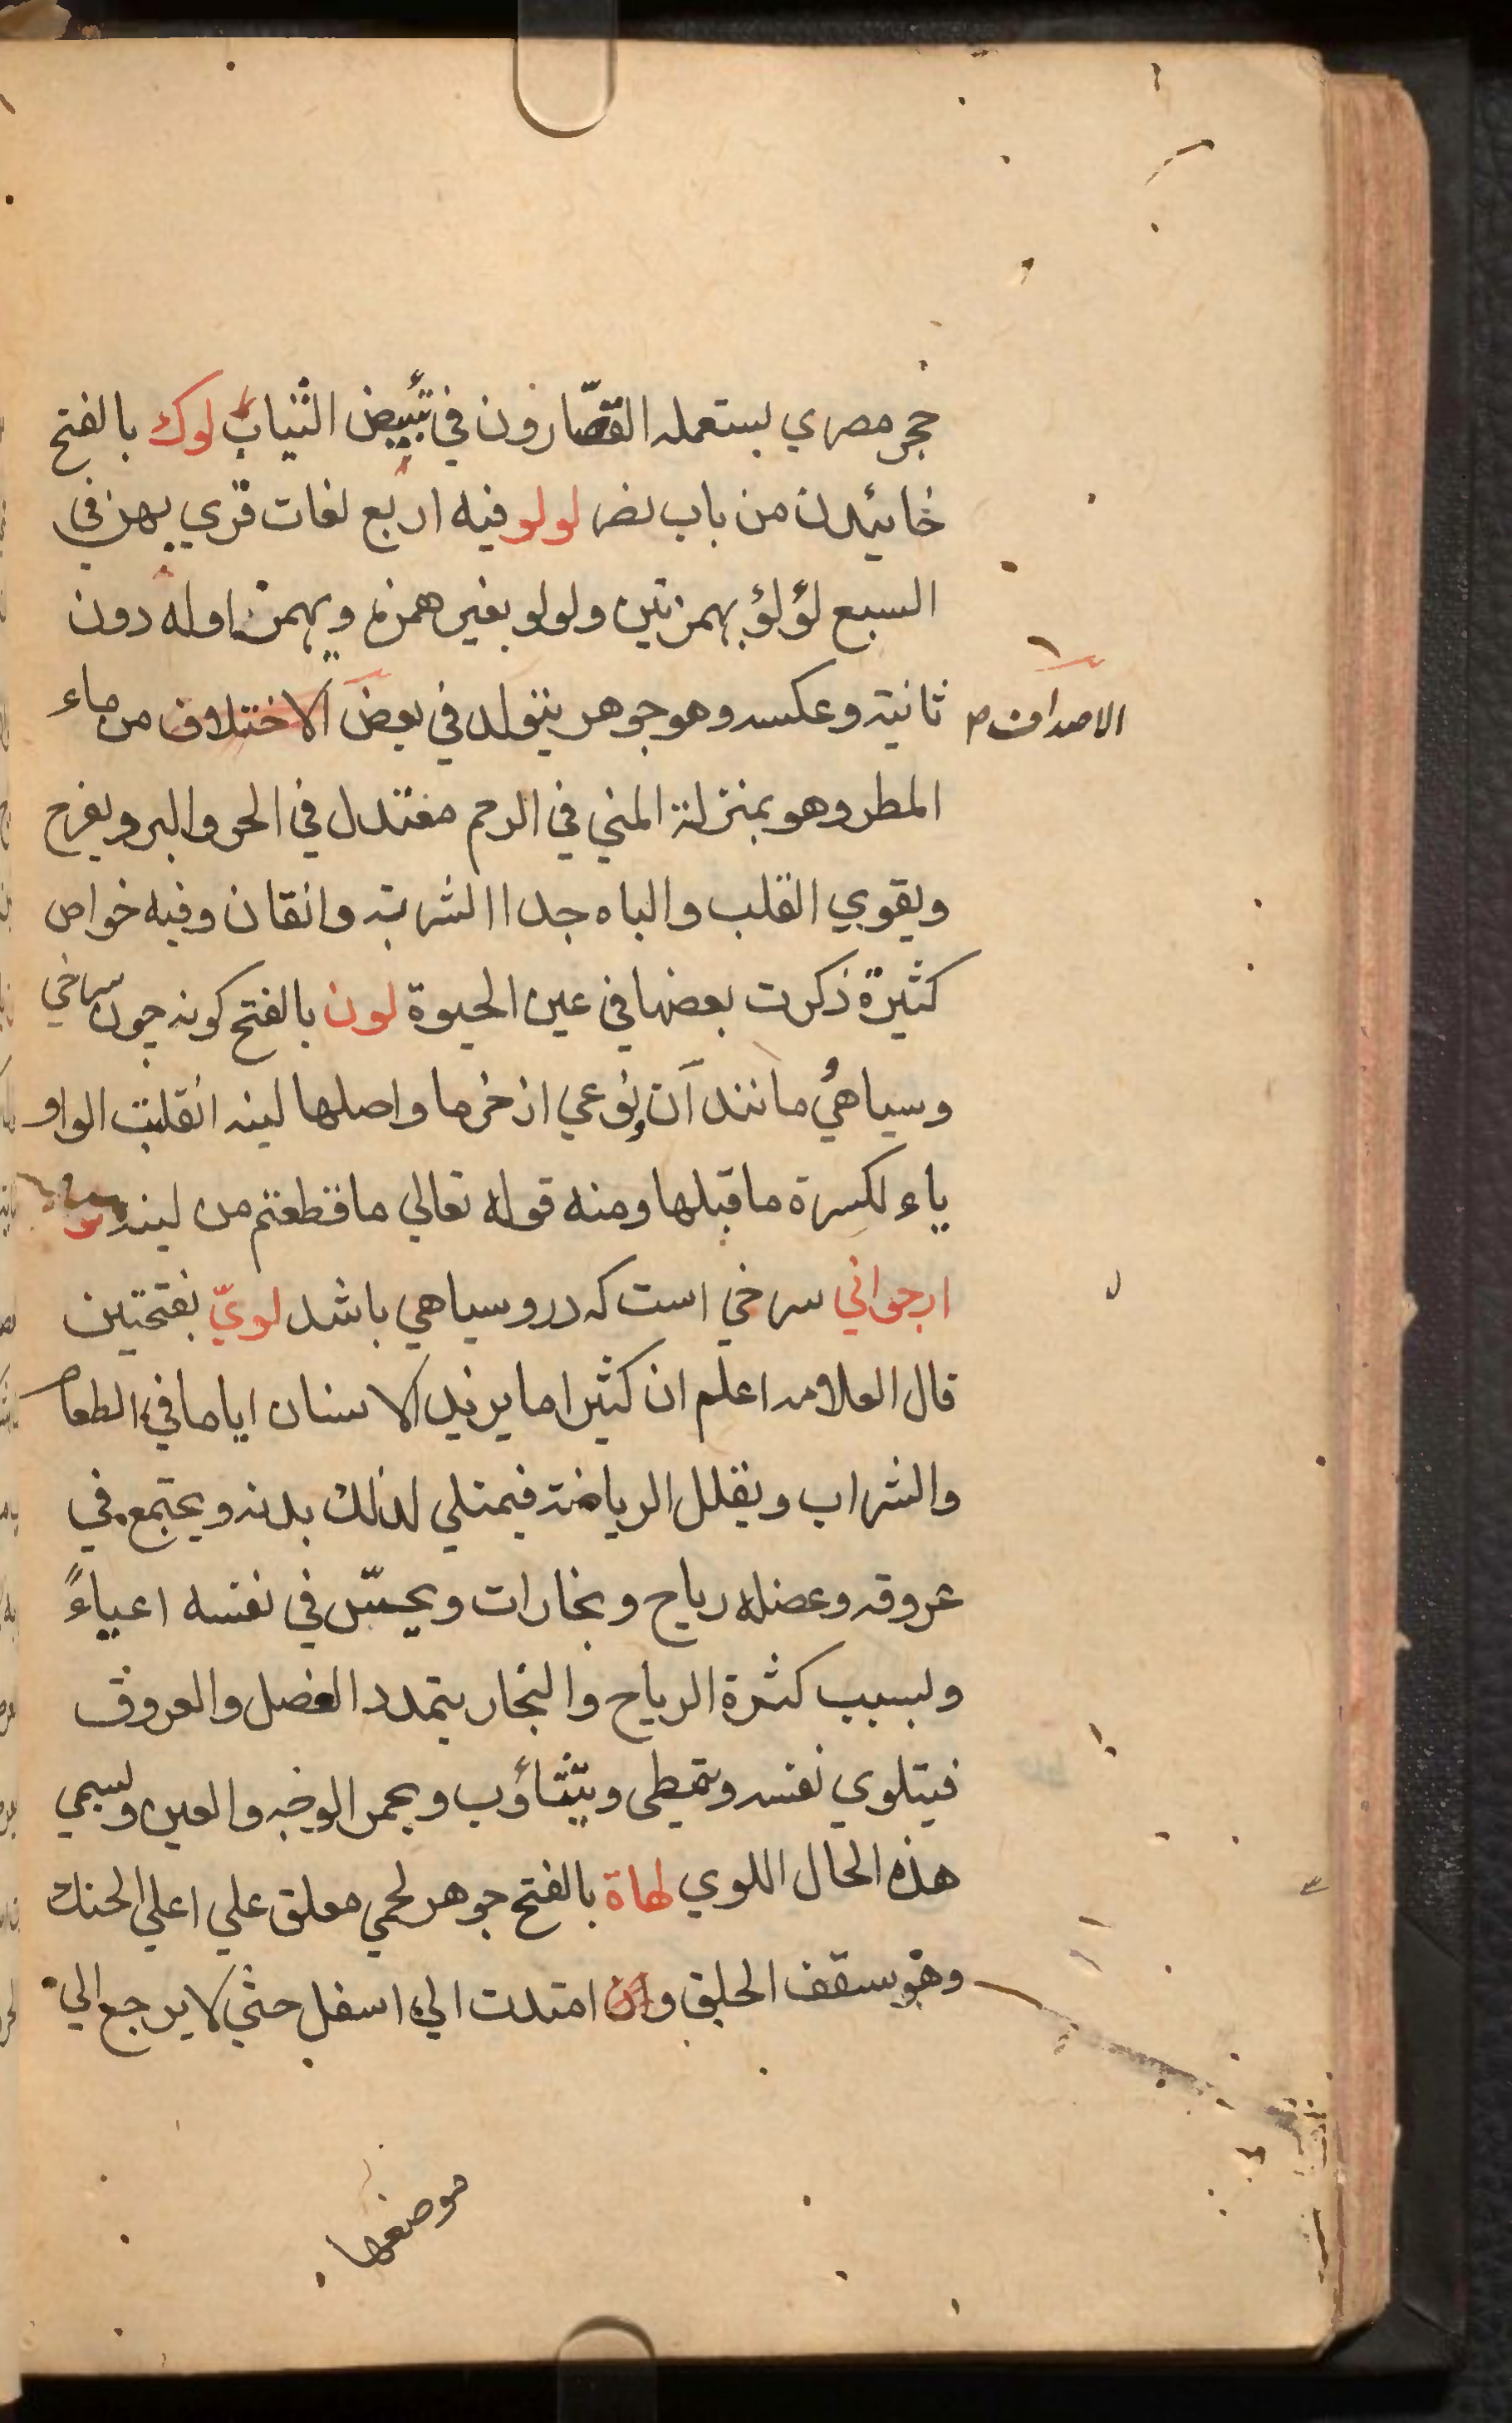 حجر مصري يستعمله القصّارون في تبيض الثياب لوك بالفتح
خائيدن من باب نصر لولو فيه اربع لغات قري بهن في
السبع لؤلؤ بهمزتين ولولو بغير همزة وبهمز اوله دون
ثانيته وعكسه وهو جوهر يتولد في بعض الاختلاف من ماء
الاصداف ص
المطر وهو بمنزلة المني في الرحم معتدل في الحر والبرو يفرح
ويقوي القلب والباه جدا الشربة دانقان وفيه خواص
كثيرة ذكرت بعضها في عين الحيوة لون بالفتح كونه چون سرخي
وسياهي مانند آن ونوعي از خرما واصلها لينه انقلبت الواو
ياء لكسرة ما قبلها ومنه قوله تعالي ما قطعتم من لينه
ارجواني سرخي است كه درو سياهي باشد لويّ بفتحتين
قال العلامه اعلم ان كثيرا ما يزيد الانسان اياما في الطعام
والشراب ويقلل الرياضة فيمتلي لذلك بدنه ويجتمع في
عروقه وعضله رياح وبخارات ويحسّ في نفسه اعياءً
ولسبب كثرة الرياح والبخار يتمدد العضل والعروق
فيتلوي نفسه وتمطي ويتثاؤب ويحمر الوجه والعين ولسمي
هذه الحال اللوي لهاة بالفتح جوهر لحمي معلق علي اعلي الحنك
وهو سقف الحلق وان امتدت الي اسفل حتي لا يرجع الي
موضعها